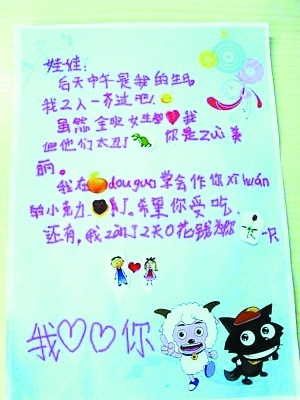 娃娃:
后天中午是我的生日
我2人一齐过吧!
虽然全班女生都我
但他们太丑了 你是Zuì美
丽。
我在douguo学会作你xǐ huán
的小克力 了。希望你爱吃
还有,我 了2天0花钱为你 一只
我♡♡你